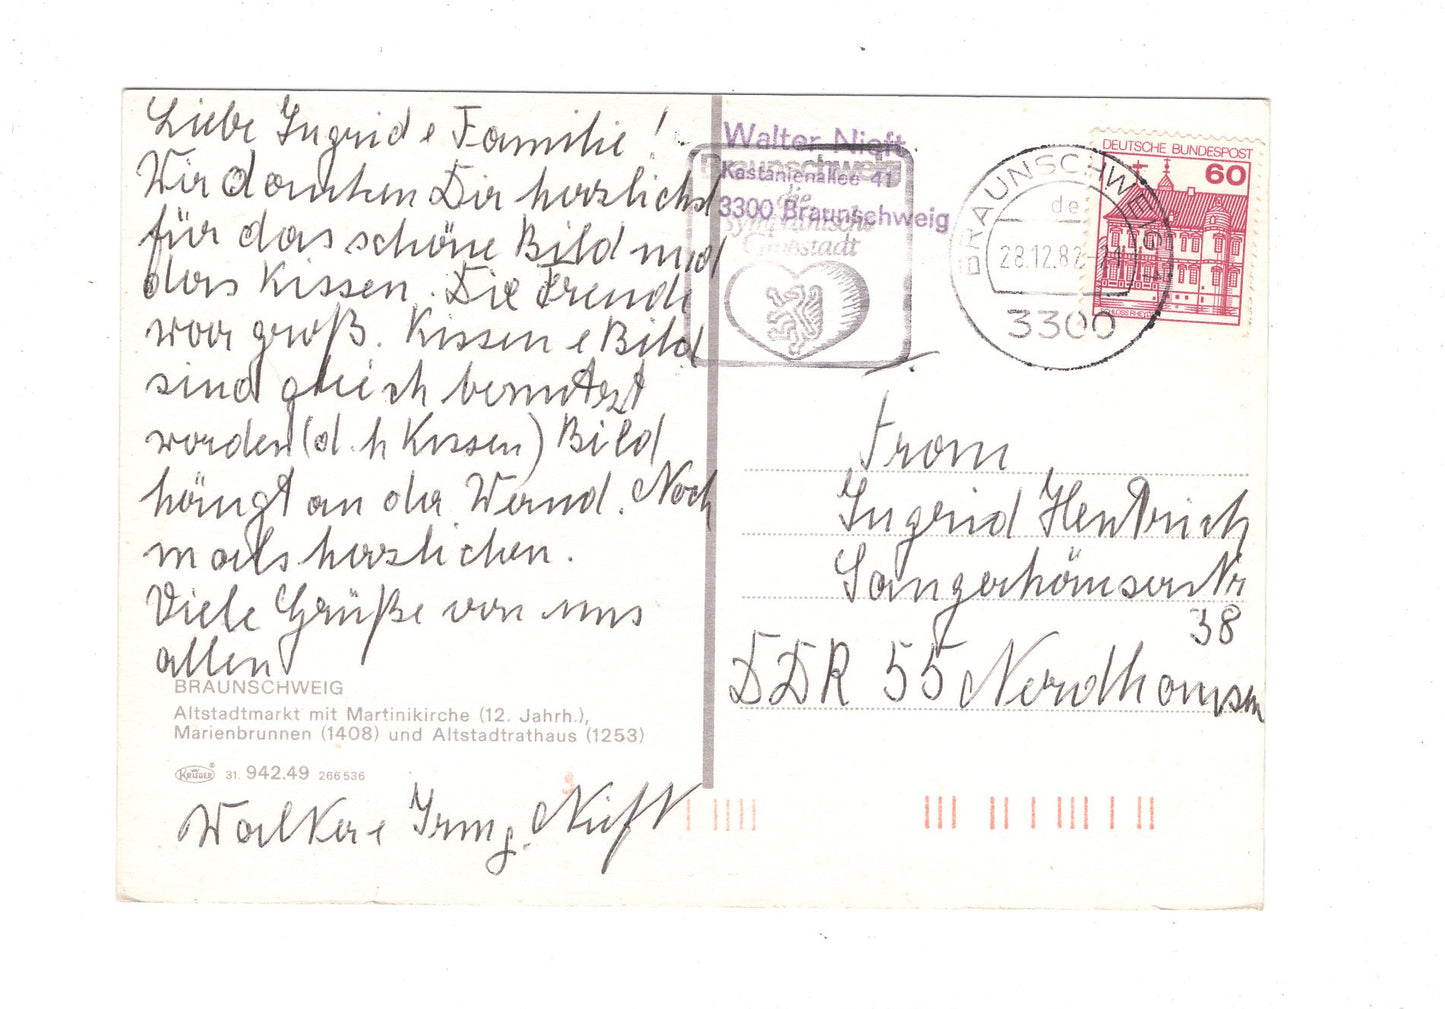 Liebe Ingrid e Familie!
Wir danken Dir herzlichst
für das schöne Bild und
das Kissen. Die Freude
war groß. Kissen e Bild
sind gleich benutzt
worden (d.h Kissen) Bild
hängt an der Wand. Noch
mals herzlichen.
Viele Grüße von uns
allen
BRAUNSCHWEIG
Altstadtmarkt mit Martinikirche (12. Jahrh.),
Marienbrunnen (1408) und Altstadtrathaus (1253)
KRÜGER® 31. 942.49 266536
Walter e Irmg. Nieft
Walter Nieft
Kastanienallee 41
3300 Braunschweig
Braunschweig
die
Sympathische
Großstadt
BRAUNSCHWEIG 1
de
28.12.82-21
3300
DEUTSCHE BUNDESPOST
60
SCHLOSS RHEYDT
Frau
Ingrid Hentrich
Sangerhäuser Nr
38
DDR 55 Nordhausen
3